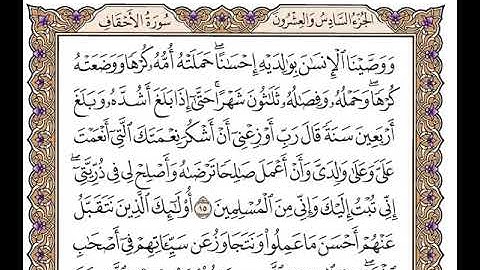 سُورَةُ الأَحْقَافِ الجُزْءُ السَّادِسُ وَالعِشْرُونَ
وَوَصَّيْنَا ٱلْإِنسَٰنَ بِوَٰلِدَيْهِ إِحْسَٰنًا ۖ حَمَلَتْهُ أُمُّهُۥ كُرْهًا وَوَضَعَتْهُ
كُرْهًا ۖ وَحَمْلُهُۥ وَفِصَٰلُهُۥ ثَلَٰثُونَ شَهْرًا ۚ حَتَّىٰٓ إِذَا بَلَغَ أَشُدَّهُۥ وَبَلَغَ
أَرْبَعِينَ سَنَةً قَالَ رَبِّ أَوْزِعْنِىٓ أَنْ أَشْكُرَ نِعْمَتَكَ ٱلَّتِىٓ أَنْعَمْتَ
عَلَىَّ وَعَلَىٰ وَٰلِدَىَّ وَأَنْ أَعْمَلَ صَٰلِحًا تَرْضَىٰهُ وَأَصْلِحْ لِى فِى ذُرِّيَّتِىٓ ۖ
إِنِّى تُبْتُ إِلَيْكَ وَإِنِّى مِنَ ٱلْمُسْلِمِينَ ١٥ أُو۟لَٰٓئِكَ ٱلَّذِينَ نَتَقَبَّلُ
عَنْهُمْ أَحْسَنَ مَا عَمِلُوا۟ وَنَتَجَاوَزُ عَن سَيِّـَٔاتِهِمْ فِىٓ أَصْحَٰبِ